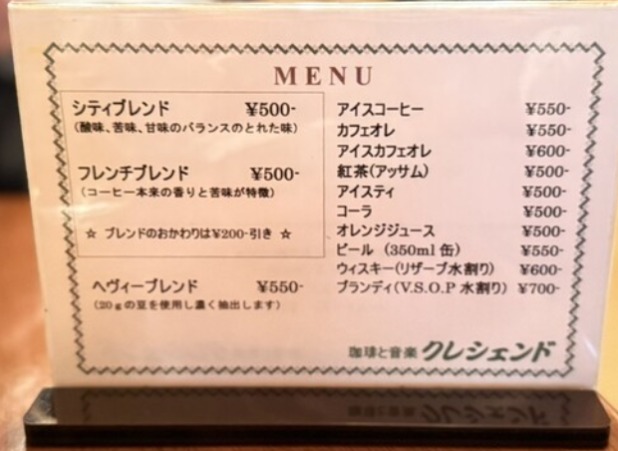 MENU
シティブレンド ¥500-
(酸味、苦味、甘味のバランスのとれた味)
フレンチブレンド ¥500-
(コーヒー本来の香りと苦味が特徴)
☆ ブレンドのおかわりは¥200-引き ☆
ヘヴィーブレンド ¥550-
(20gの豆を使用し濃く抽出します)
アイスコーヒー ¥550-
カフェオレ ¥550-
アイスカフェオレ ¥600-
紅茶(アッサム) ¥500-
アイスティ ¥500-
コーラ ¥500-
オレンジジュース ¥500-
ビール (350ml 缶) ¥550-
ウィスキー(リザーブ水割り) ¥600-
ブランディ(V.S.O.P 水割り) ¥700-
珈琲と音楽 クレシェンド